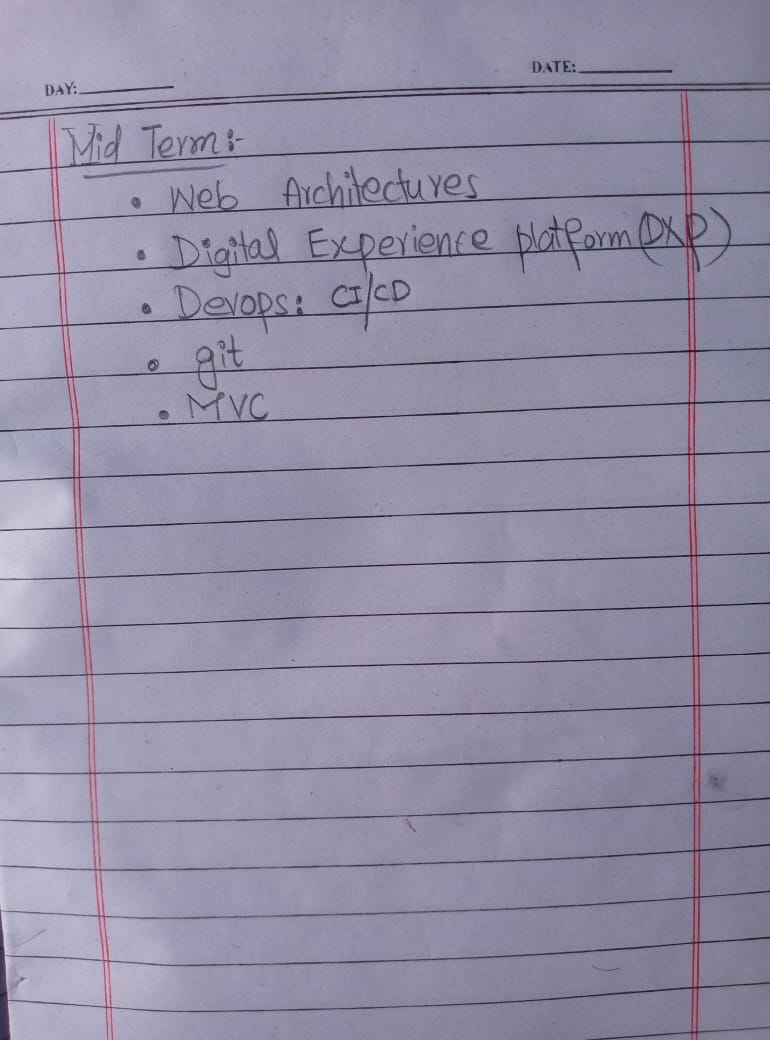 DAY:
DATE:
Mid Term:-
• Web Architectures
• Digital Experience platform (DXP)
• Devops: CI/CD
• git
• MVC